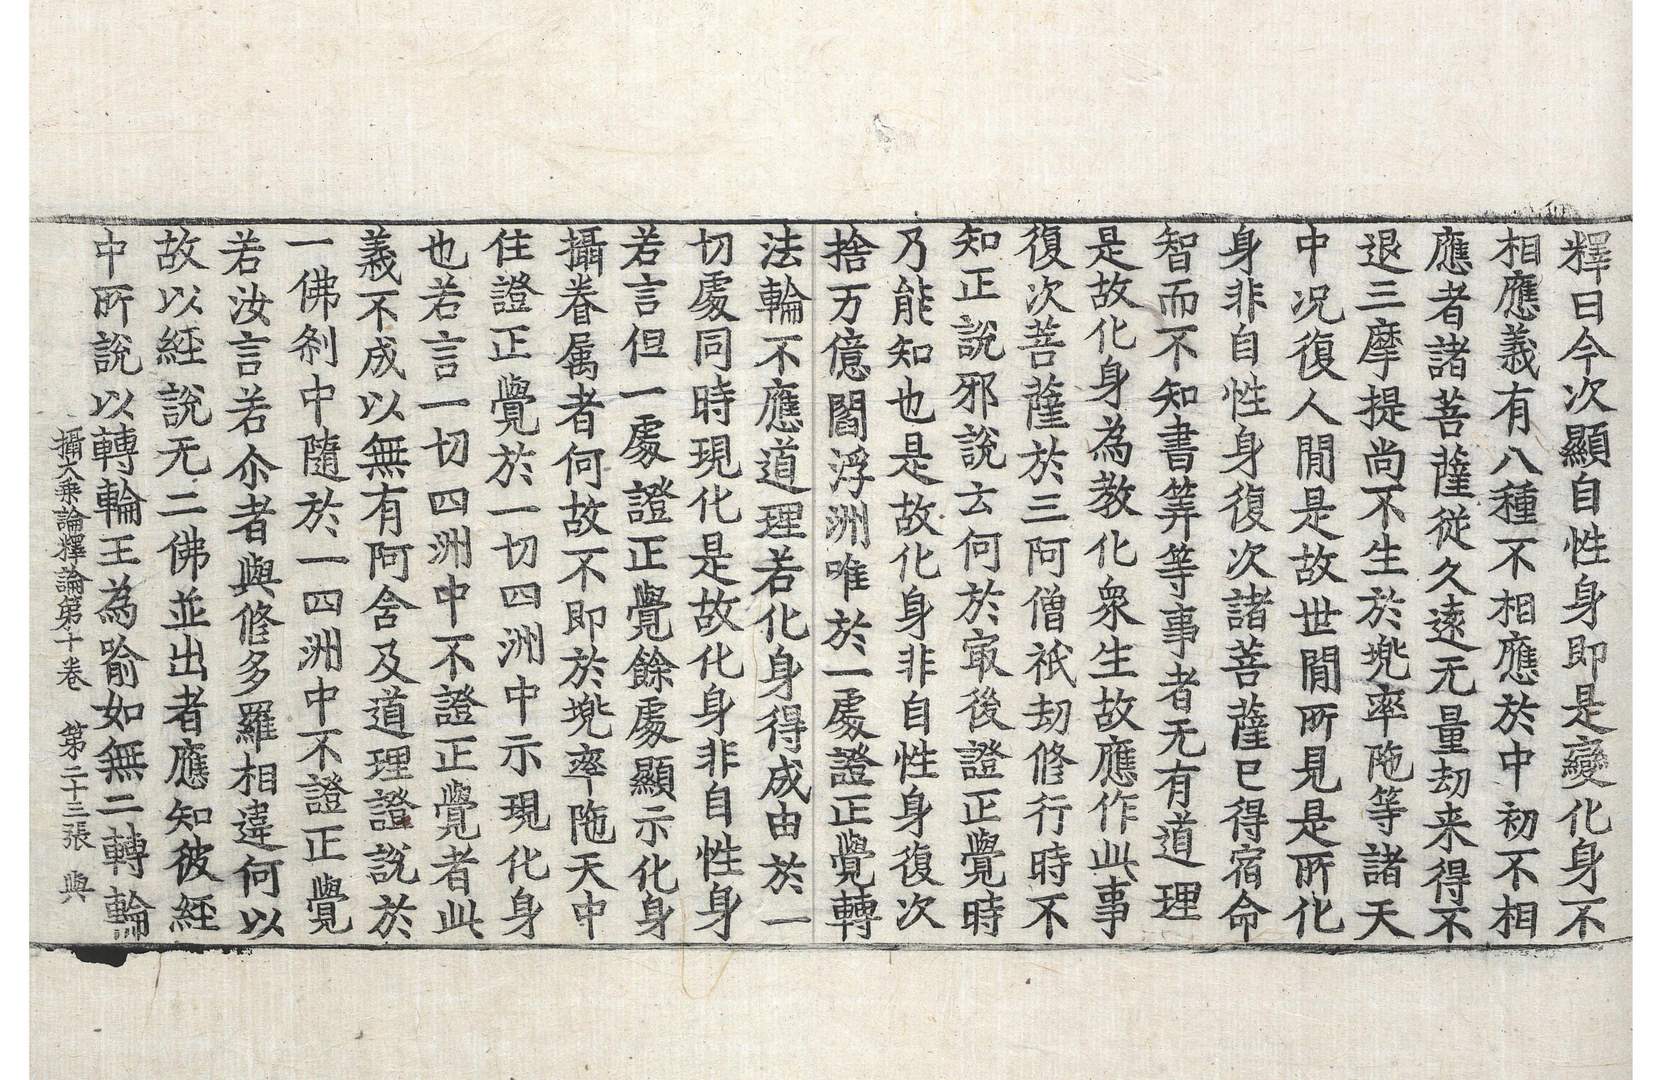 釋曰今次顯自性身即是變化身不
相應義有八種不相應於中初不相
應者諸菩薩從久遠无量劫来得不
退三摩提尚不生於兠率陁等諸天
中况復人間是故世間所見是所化
身非自性身復次諸菩薩已得宿命
智而不知書筭等事者无有道理
是故化身為教化衆生故應作此事
復次菩薩於三阿僧祇劫修行時不
知正說邪說云何於㝡後證正覺時
乃能知也是故化身非自性身復次
捨万億閻浮洲唯於一處證正覺轉
法輪不應道理若化身得成由於一
切處同時現化是故化身非自性身
若言但一處證正覺餘處顯示化身
攝眷属者何故不即於兠率陁天中
住證正覺於一切四洲中示現化身
也若言一切四洲中不證正覺者此
義不成以無有阿含及道理證說於
一佛刹中隨於一四洲中不證正覺
若汝言若尒者與修多羅相違何以
故以經說无二佛並出者應知彼經
中所說以轉輪王為喻如無二轉輪
攝大乘論釋論第十卷　第二十三張　與